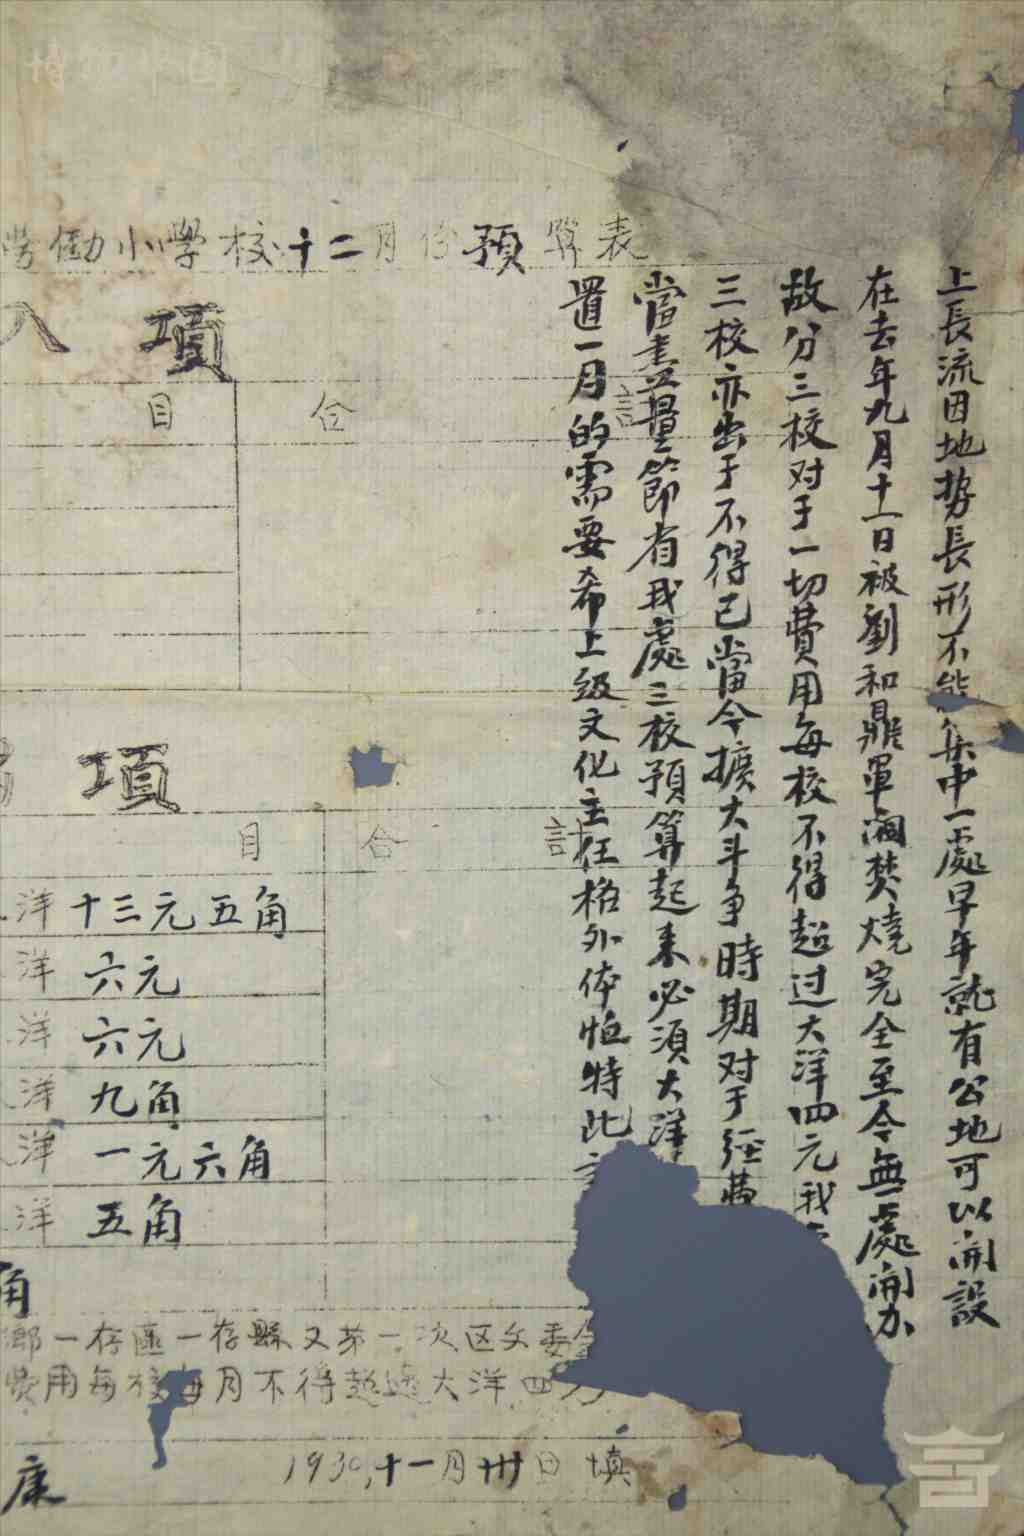 博物中国
勞働小學校十二月份預算表
入項
目 合 計
項
目 合 計
洋 十三元五角
洋 六元
洋 六元
洋 九角
洋 一元六角
洋 五角
角
鄉一存區一存縣又第一次区文委
費用每校每月不得超過大洋四
康
1930,十一月卅日填
上長流因地势長形不能集中一處早年就有公地可以開設
在去年九月十一日被劉和鼎軍阀焚燒完全至今無處開办
故分三校对于一切費用每校不得超过大洋四元我
三校亦出于不得已當今擴大斗争時期对于經費
當盡量節省我處三校預算起来必須大洋
置一月的需要希上级文化主任格外体恤特此